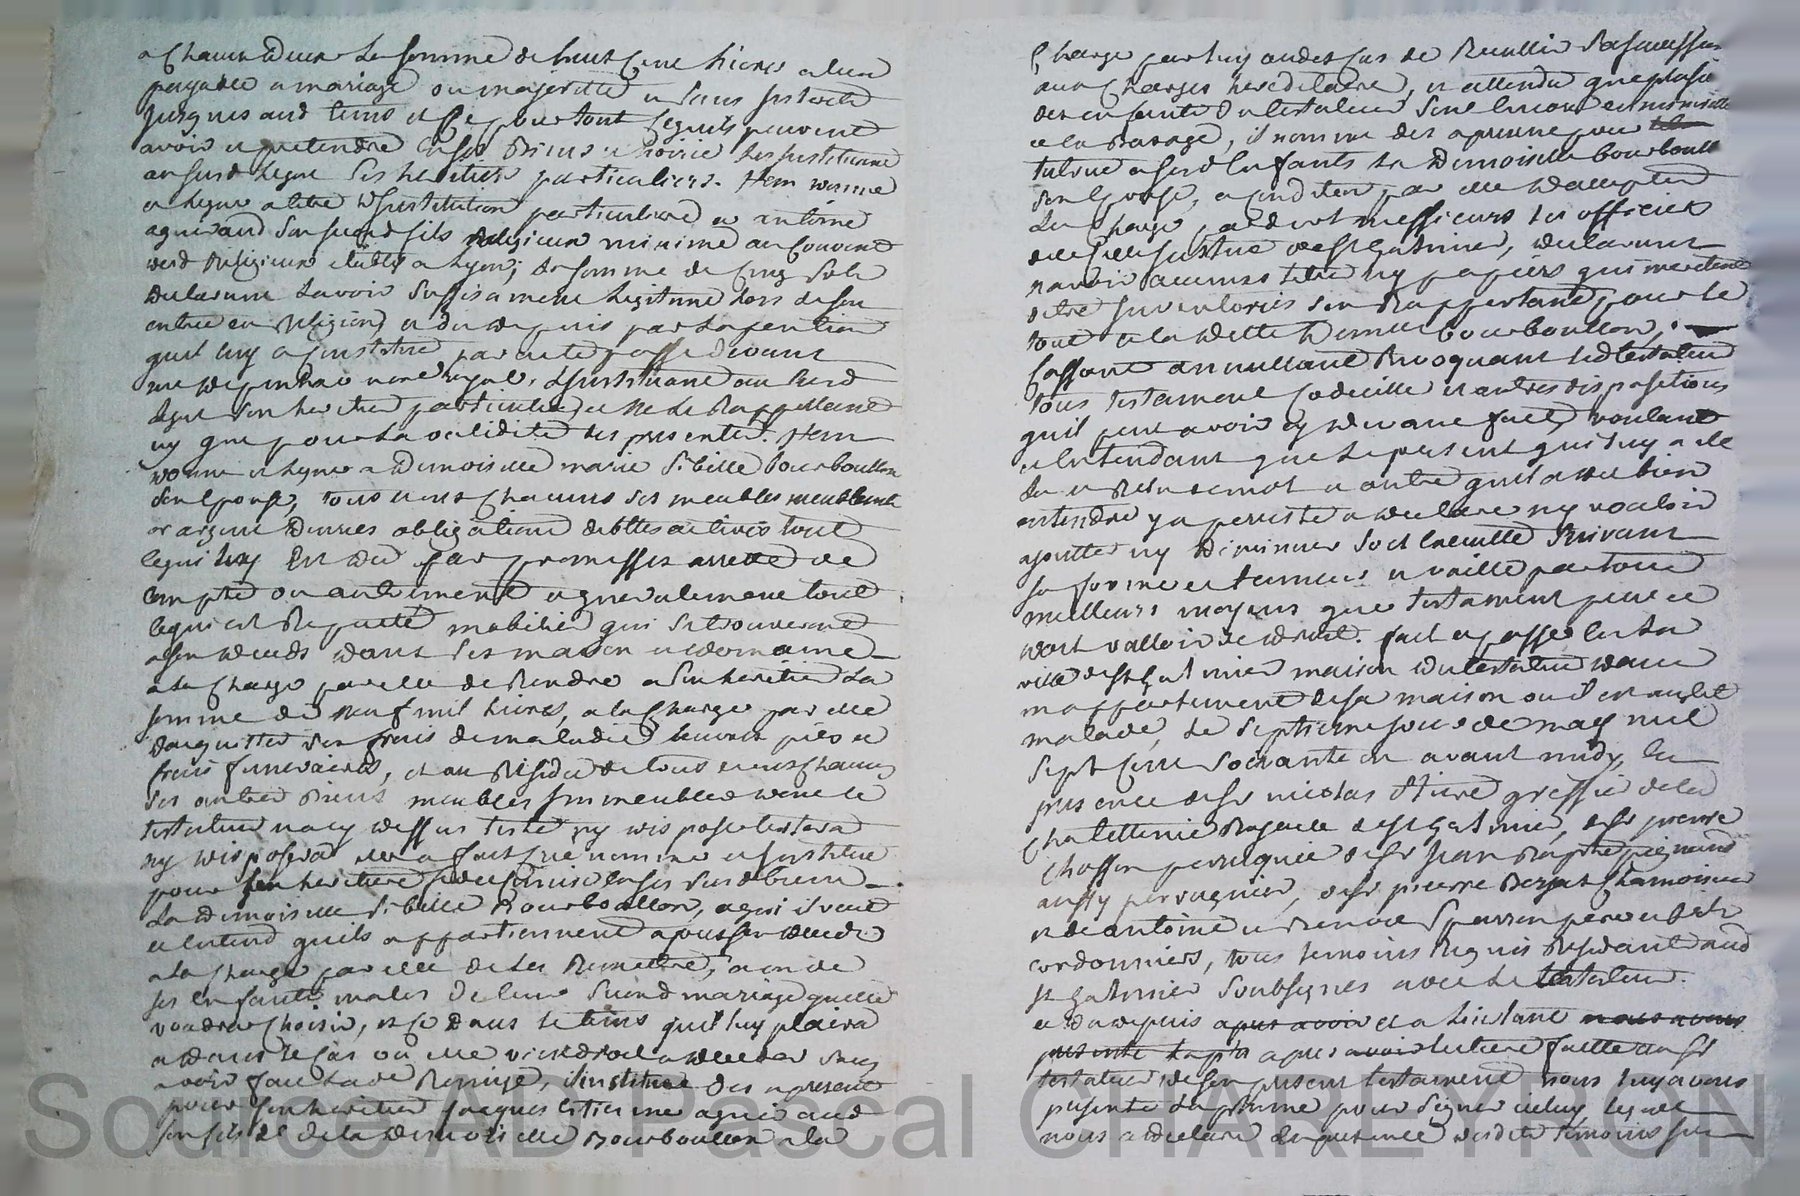 a chacun deux la somme de huit cent livres a eux
payable a mariage ou majorité et sans interest
jusques aud tems et ce pour tout ce quils peuvent
avoir et pretendre en ses biens et hoirie les instituant
au susd legue ses heritiers particuliers. Item donne
et legue a titre dinstitution particuliere a antoine
aguiraud son second fils religieux minime au couvent
desd religieux etablis a Lyon, la somme de cinq sols
declarant lavoir suffisament legitimé lors de son
entrée en religion et du depuis par la pention
quil luy a constitué par acte passé devant
me depinhac nore royal, linstituant au susd
legue son heritier particulier et ne le rappellant
icy que pour la validité des presentes. Item
donne et legue a demoiselle marie sibille bourboullon
son epouse, tous et uns chacuns ses meubles meublants
or argent denrées obligations debttes actives tout
ce qui luy est dû par promesses arretté de
compte ou autrement et generalement tout
ce qui est reputé mobilier qui se trouveront
a son decéds dans ses maison et domaine
a la charge par elle de rendre a son heritier la
somme de neuf mil livres, a la charge par elle
dacquitter ses frais de maladie leuvres pies et
frais funeraires, et au residu de tous et uns chacuns
ses autres biens meubles immeubles dont le
testateur na cy dessus testé ny disposé testera
ny disposera il a fait créé nommé et institué
pour son heritiere fideicommise en ses susd biens
La demoiselle sibille Bourboullon, a qui il veut
et entend quils appartiennent a pres son decéds
a la charge par elle de les remettre, a un de
ses enfants males de leur second mariage quelle
voudra choisir, et ce dans le tems quil luy plaira
et dans le cas ou elle viendroit a deceder sans
avoir fait lade remise, il institue des a present
pour son heritier jacques etienne aguiraud
son fils et de la demoiselle Bourboullon a la
charge par luy aud cas de
aux charges hereditaires, et attendu que plusieurs
des enfants du testateur sont encore en minorité
et la bas age, il nomme des a presant pour
tutrice a sesd enfants la demoiselle bourboullon
son epouse, a condition par elle daccepter
la charge, pardevant messieurs les officiers
de cette justice de st Galmier, declarant
navoir aucuns titre ny papiers qui meritent
detre inventoriés sen rapportant, pour le
tout a la dette demlle bourboullon,
Cassant annullant revoquant led testateur
tous testament codecille et autres dispositions
quil peut avoir cy devant faits voulant
et entendant que le present quil luy a eté
lu et relu de mot a autre quil a dit bien
entendre y a persisté a declaré ny vouloir
ajoutter ny diminuer soit executté suivant
sa forme et teneur et vaille par tous
meilleurs moyens que testament peut et
doit valloir de droit. fait et passé en la
ville de st Galmier maison du testateur dans
un appartement de sa maison ou il est au lit
malade, le septieme jour de may mil
sept cent soixante et avant midy, en
presence de sr nicolas greffier de la
chatellenie royalle de st Galmier, de sr pierre
chosson perruquier de sr jean baptiste
aussy perruquier, de sr pierre chamoiseur
et de antoine et pere et fils
cordonniers, tous temoins requis residant aud
st Galmier soubsignes avec le testateur.
et du depuis apres avoir et a linstant nous avons
presenté la plume apres avoir lecture faitte aud sr
testateur de son present testament nous luy avons
presenté la plume pour signer iceluy lequel
nous a declaré en presence desdits temoins sur